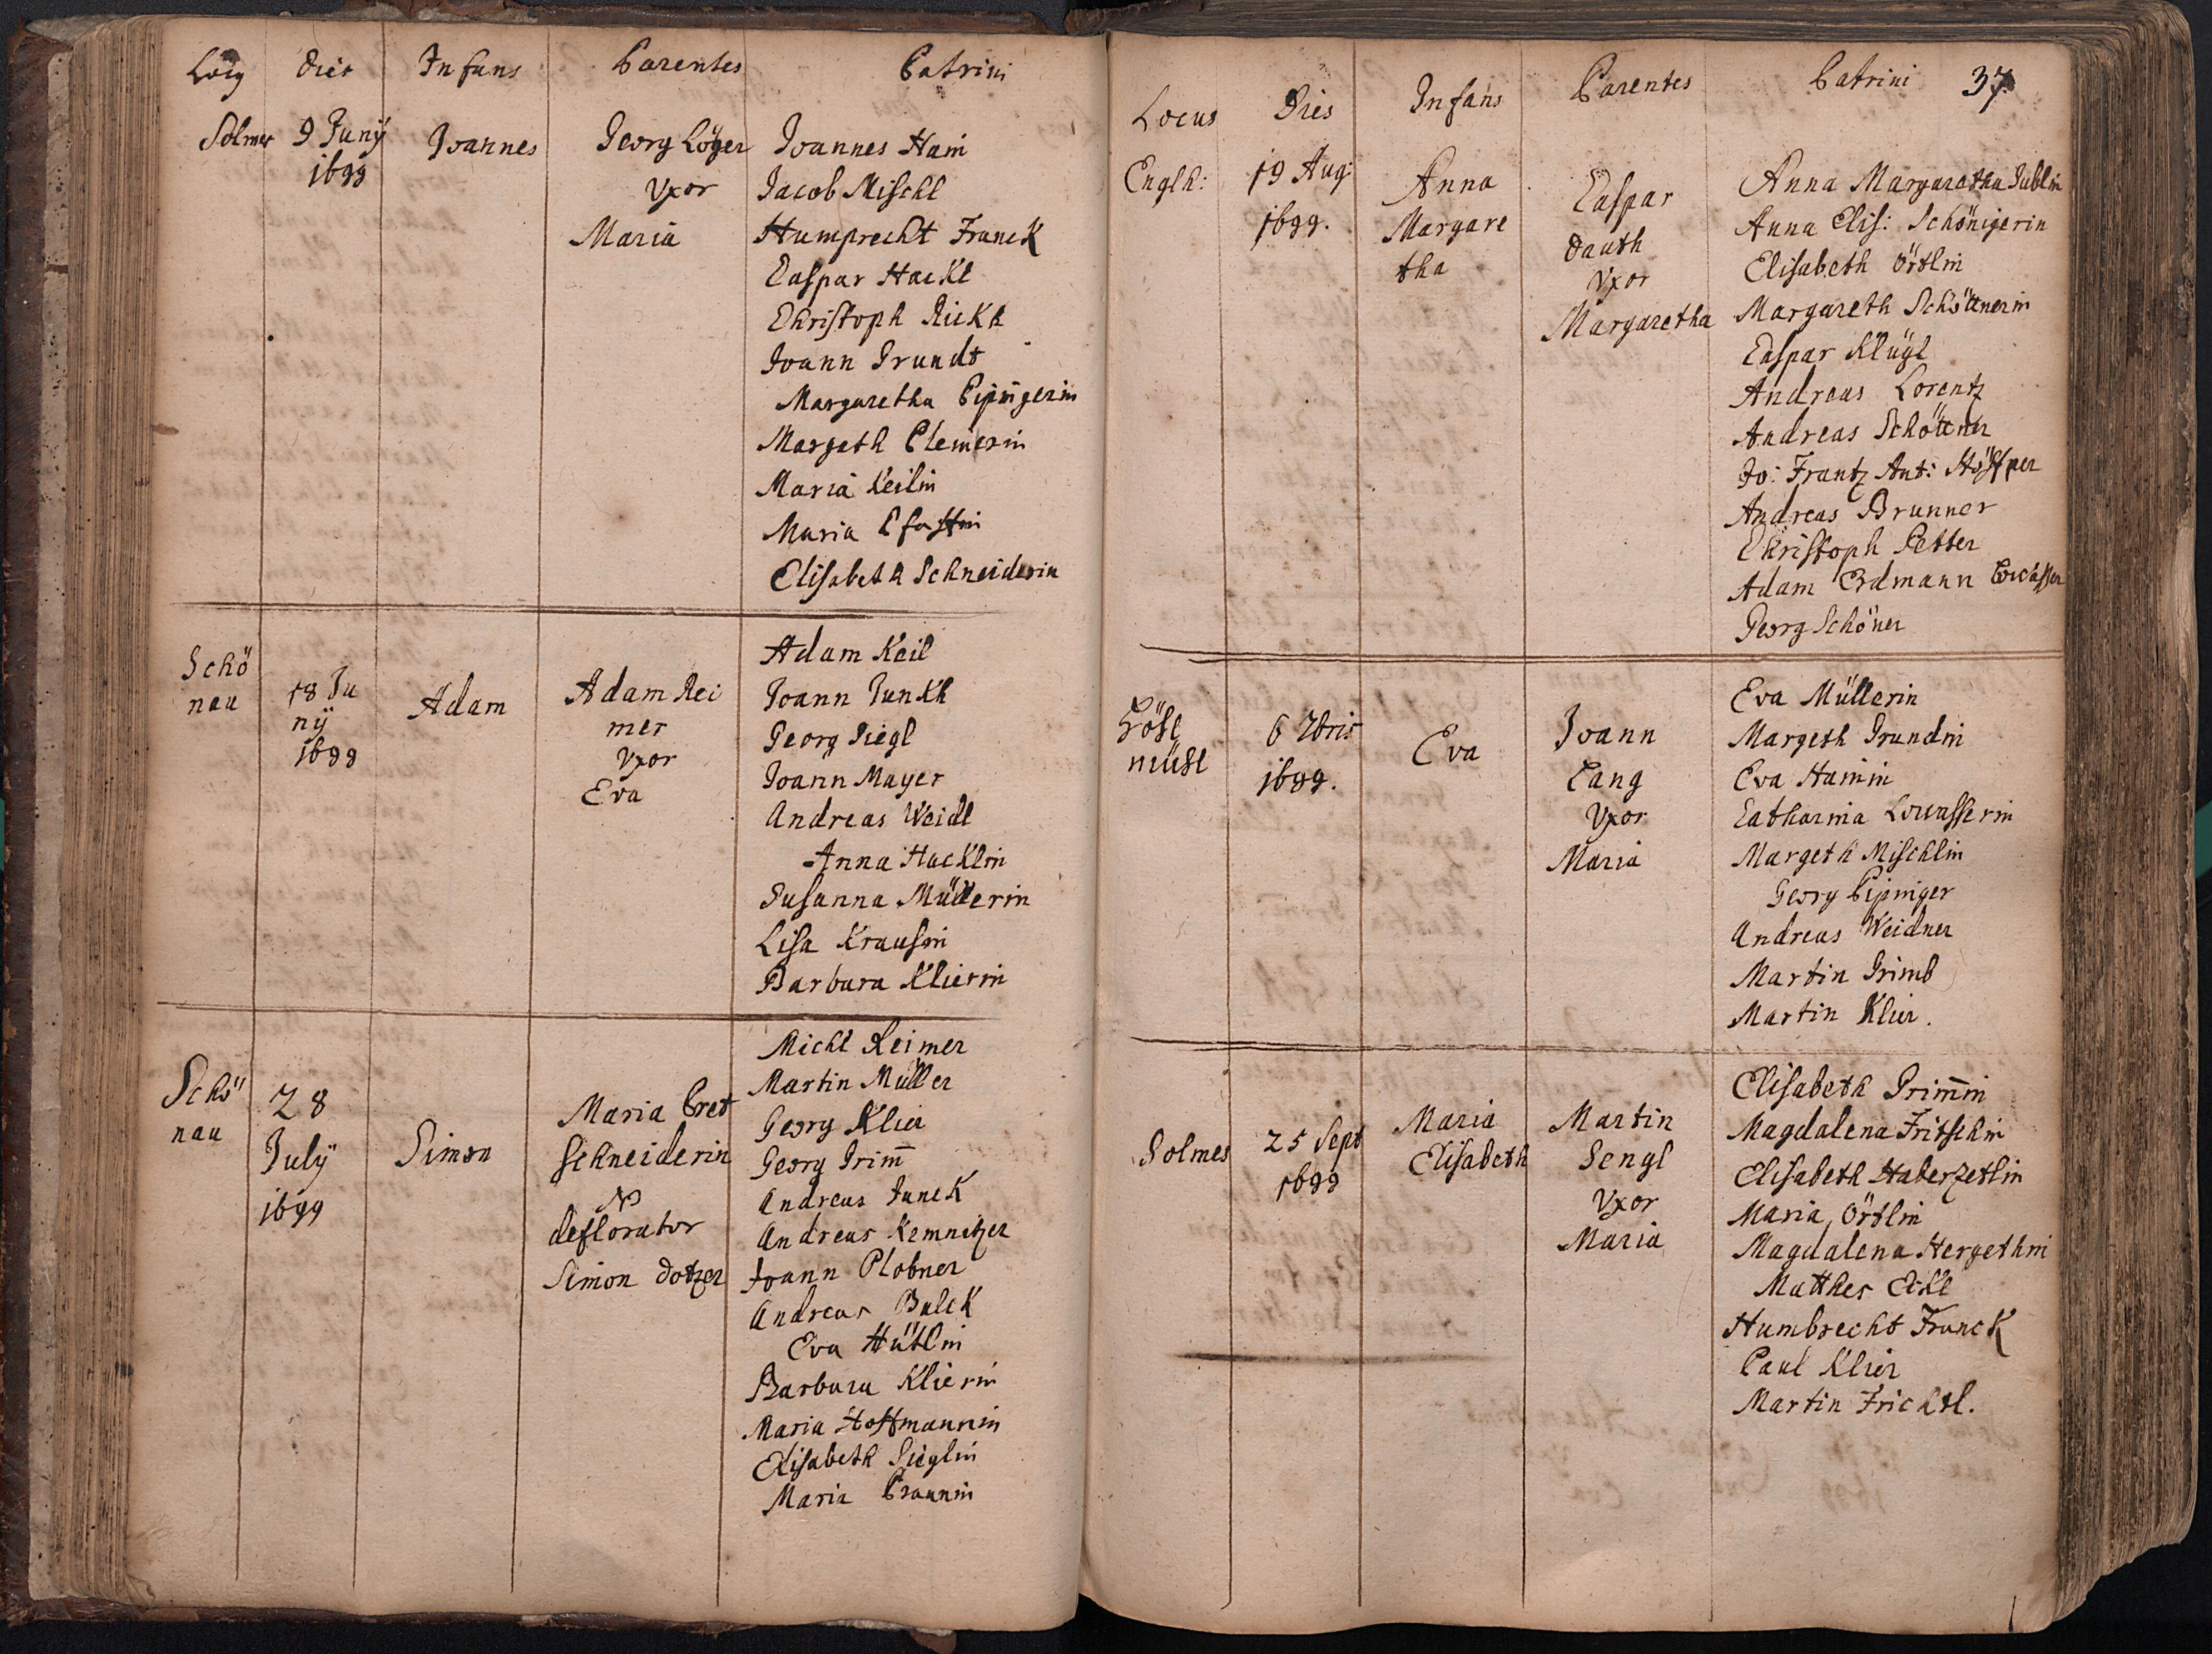 Locus Dies Infans Parentes Patrini
Solmes 9 Junÿ 1699
Joannes
Georg Löger
Vxor
Maria
Joannes Ham
Jacob Mischl
Humprecht Franck
Caspar Hackl
Christoph Rickh
Joann Grundt
Margaretha Pipingerin
Margeth Clemerin
Maria Keilin
Maria
Elisabeth Schneiderin
Schö
nau
18 Ju
nÿ
1699
Adam
Adam Rei
mer
Vxor
Eva
Adam Keil
Joann Junkh
Georg Siegl
Joann Mayer
Andreas Weidl
Anna Hacklin
Susanna Müllerin
Lisa Krausin
Barbara Klierin
Schö
nau
28
Julÿ
1699
Simon
Maria Bret
schneiderin
N
deflorator
Simon Dotzer
Michl Reimer
Martin Müller
Georg Klier
Georg Grim̄
Andreas Junck
Andreas Kemnitzer
Joann Plobner
Andreas Balck
Eva Hütlin
Barbara Klierin
Maria Hoffmannin
Elisabeth Sieglin
Maria Braunin
Locus Dies Infans Parentes Patrini 37
Englh:
19 Aug:
1699.
Anna
Margare
tha
Caspar
Dauth
Vxor
Margaretha
Anna Margaretha
Anna Elis: Schönigerin
Elisabeth Örtlin
Margareth Schöttnerin
Caspar Klügl
Andreas Lorentz
Andreas Schöttner
Jo: Frantz Ant:
Andreas Brunner
Christoph Petter
Adam Erdmann
Georg Schöner
mühl
6 7bris
1699.
Eva
Joann
Lang
Vxor
Maria
Eva Müllerin
Margeth Grundin
Eva Hamin
Catharina Lowasserin
Margeth Mischlin
Georg Pipinger
Andreas Weidner
Martin Grimb
Martin Klier.
Solmes
25 Sept
1699
Maria
Elisabeth
Martin
Sengl
Vxor
Maria
Elisabeth Grim̄in
Magdalena Fritschin
Elisabeth Haberzetlin
Maria Örtlin
Magdalena Hergethin
Matthes Eckl
Humbrecht Franck
Paul Klier
Martin Frichtl.